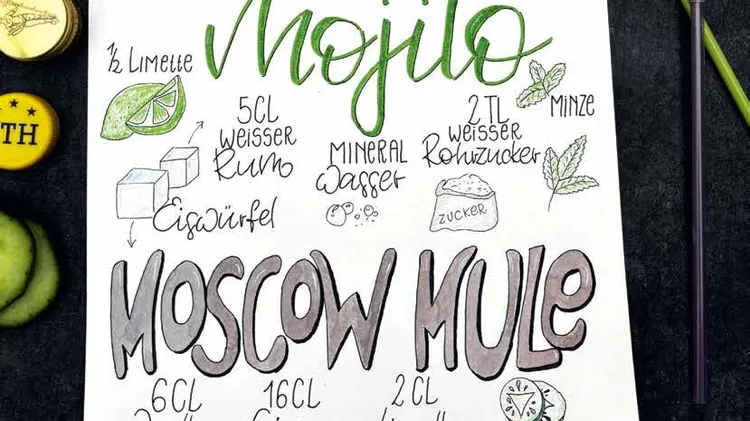 Mojito
½ LIMETTE
5CL
WEISSER
Rum
MINERAL
Wasser
2 TL
WEISSER
Rohrzucker
MINZE
Eiswürfel
ZUCKER
TH
MOSCOW MULE
6CL
16CL
2CL